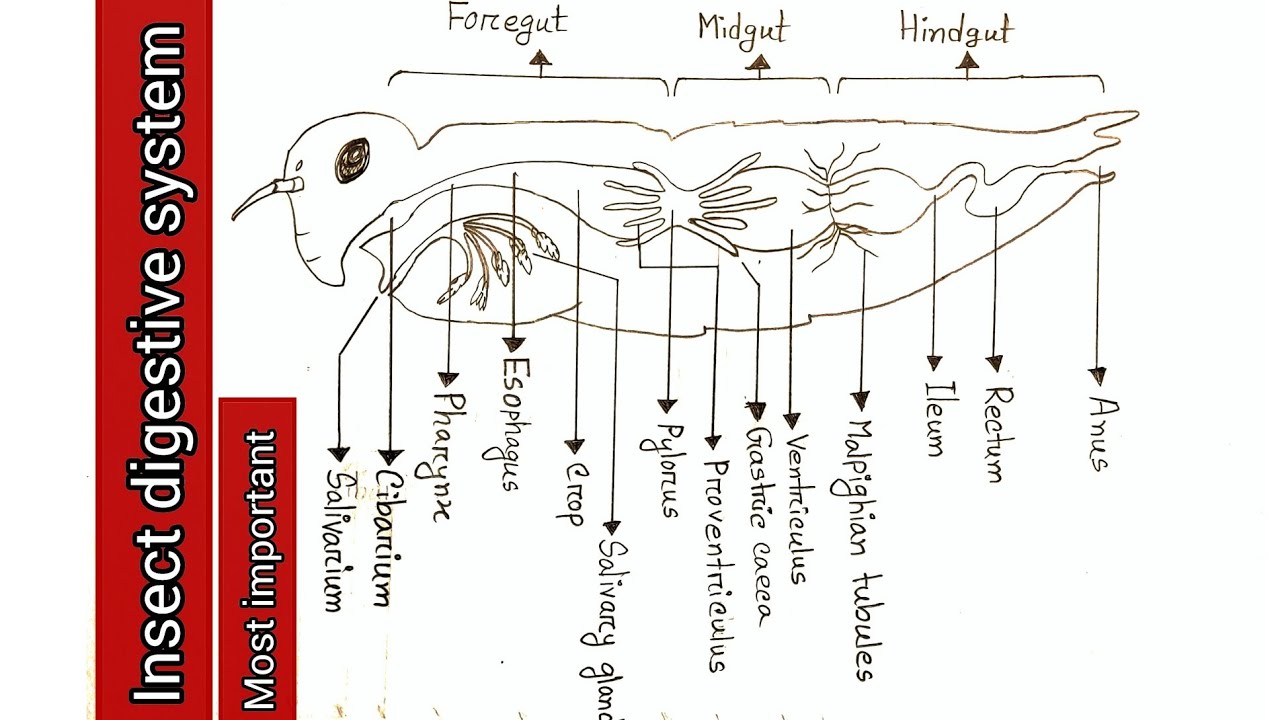 Insect digestive system
Most important
Foregut
Midgut
Hindgut
Salivarium
Cibarium
Pharynx
Esophagus
Crop
Salivary gland
Pylorus
Proventriculus
Gastric caeca
Ventriculus
Malpighian tubules
Ileum
Rectum
Anus